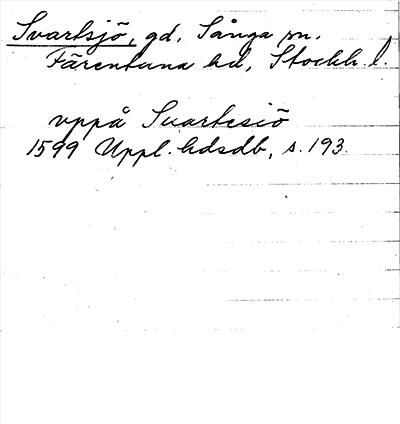 Svartsjö, gd, Sånga sn.
Färentuna hd, Stockh. l.
vppå Suartesiö
1599 Uppl. hdsdb, s. 193.